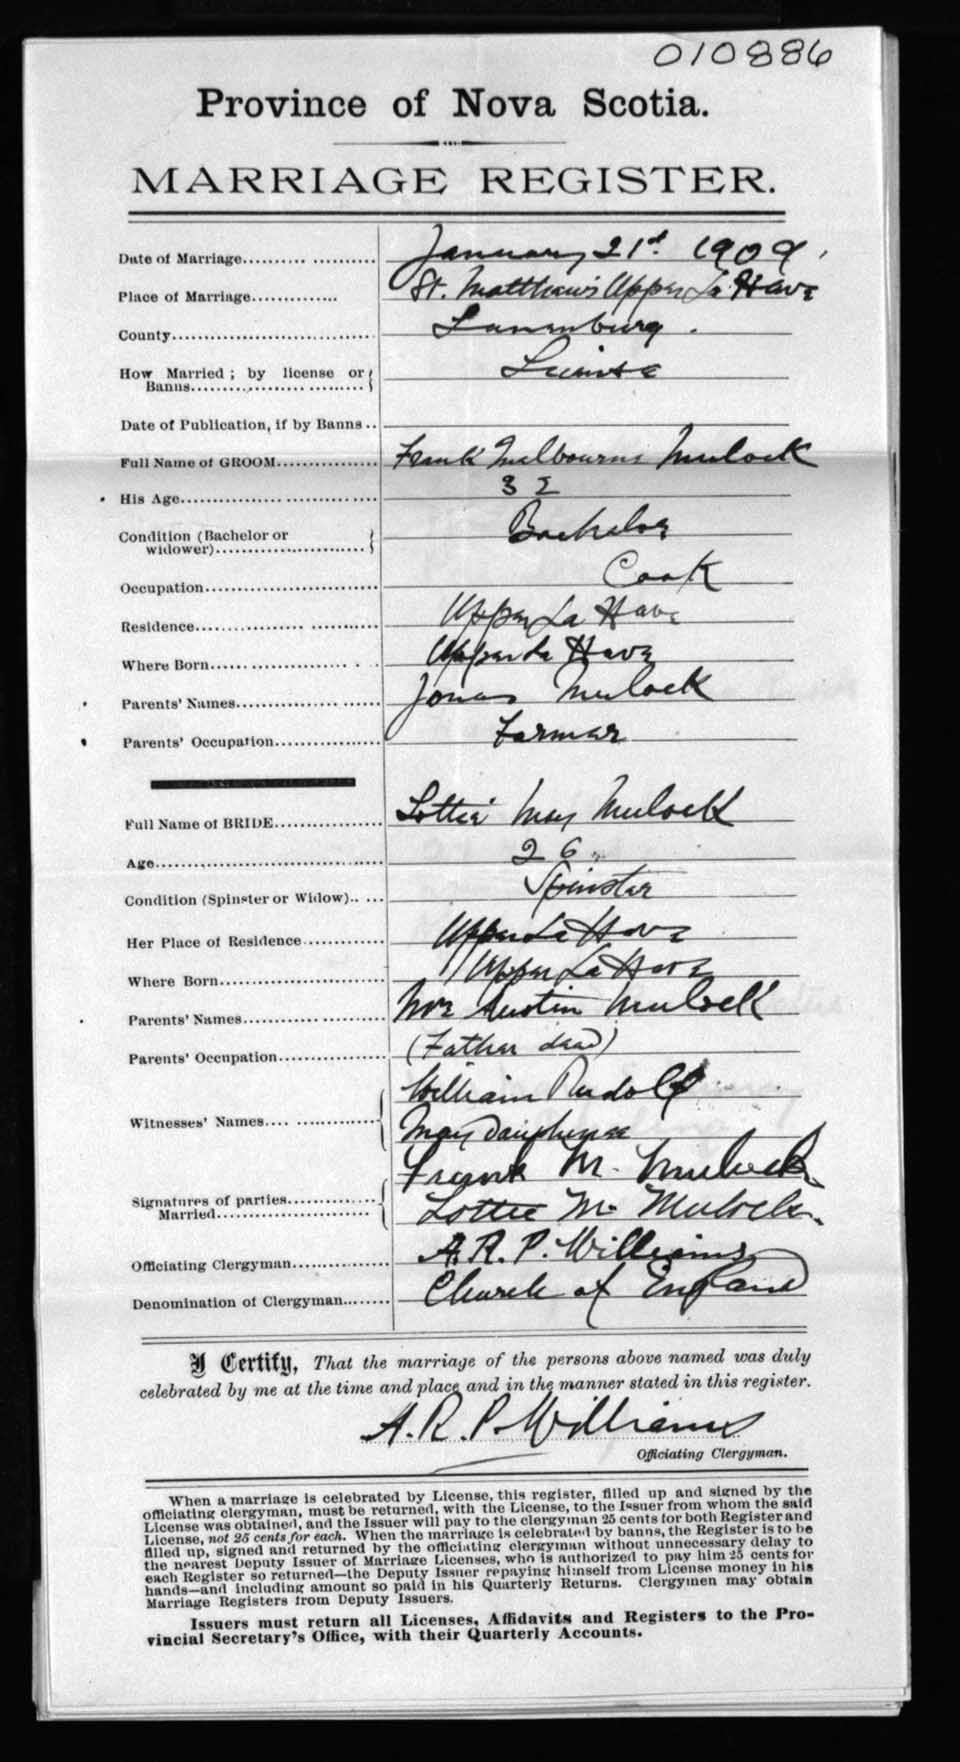 010886
Province of Nova Scotia.
MARRIAGE REGISTER.
Date of Marriage.......... ............ January 21st 1909
Place of Marriage.............. St. Matthew's Upper La Have
County................................ Lunenburg.
How Married ; by license or Banns........................... License
Date of Publication, if by Banns ..
Full Name of GROOM................ Frank Melbourne Mulock
His Age.............................. 32
Condition (Bachelor or widower).......................... Bachelor
Occupation........................... Cook
Residence............................ Upper La Have
Where Born......................... Upper La Have
Parents' Names....................... Jonas Mulock
Parents' Occupation................. Farmer
Full Name of BRIDE................ Lottie May Mulock
Age................................... 26
Condition (Spinster or Widow).. ... Spinster
Her Place of Residence............. Upper La Have
Where Born......................... Upper La Have
Parents' Names...................... Austin Mulock
Parents' Occupation................ (Father dead)
William Rudolf
Witnesses' Names.... ..............
May Dauphinee
Frank M. Mulock
Signatures of parties Married....................
Lottie M. Mulock
Officiating Clergyman............... A. R. P. Williams
Denomination of Clergyman........ Church of England
I Certify, That the marriage of the persons above named was duly
celebrated by me at the time and place and in the manner stated in this register.
A. R. P. Williams
Officiating Clergyman.
When a marriage is celebrated by License, this register, filled up and signed by the
officiating clergyman, must be returned, with the License, to the Issuer from whom the said
License was obtained, and the Issuer will pay to the clergyman 25 cents for both Register and
License, not 25 cents for each. When the marriage is celebrated by banns, the Register is to be
filled up, signed and returned by the officiating clergyman without unnecessary delay to
the nearest Deputy Issuer of Marriage Licenses, who is authorized to pay him 25 cents for
each Register so returned—the Deputy Issuer repaying himself from License money in his
hands—and including amount so paid in his Quarterly Returns. Clergymen may obtain
Marriage Registers from Deputy Issuers.
Issuers must return all Licenses, Affidavits and Registers to the Pro-
vincial Secretary's Office, with their Quarterly Accounts.